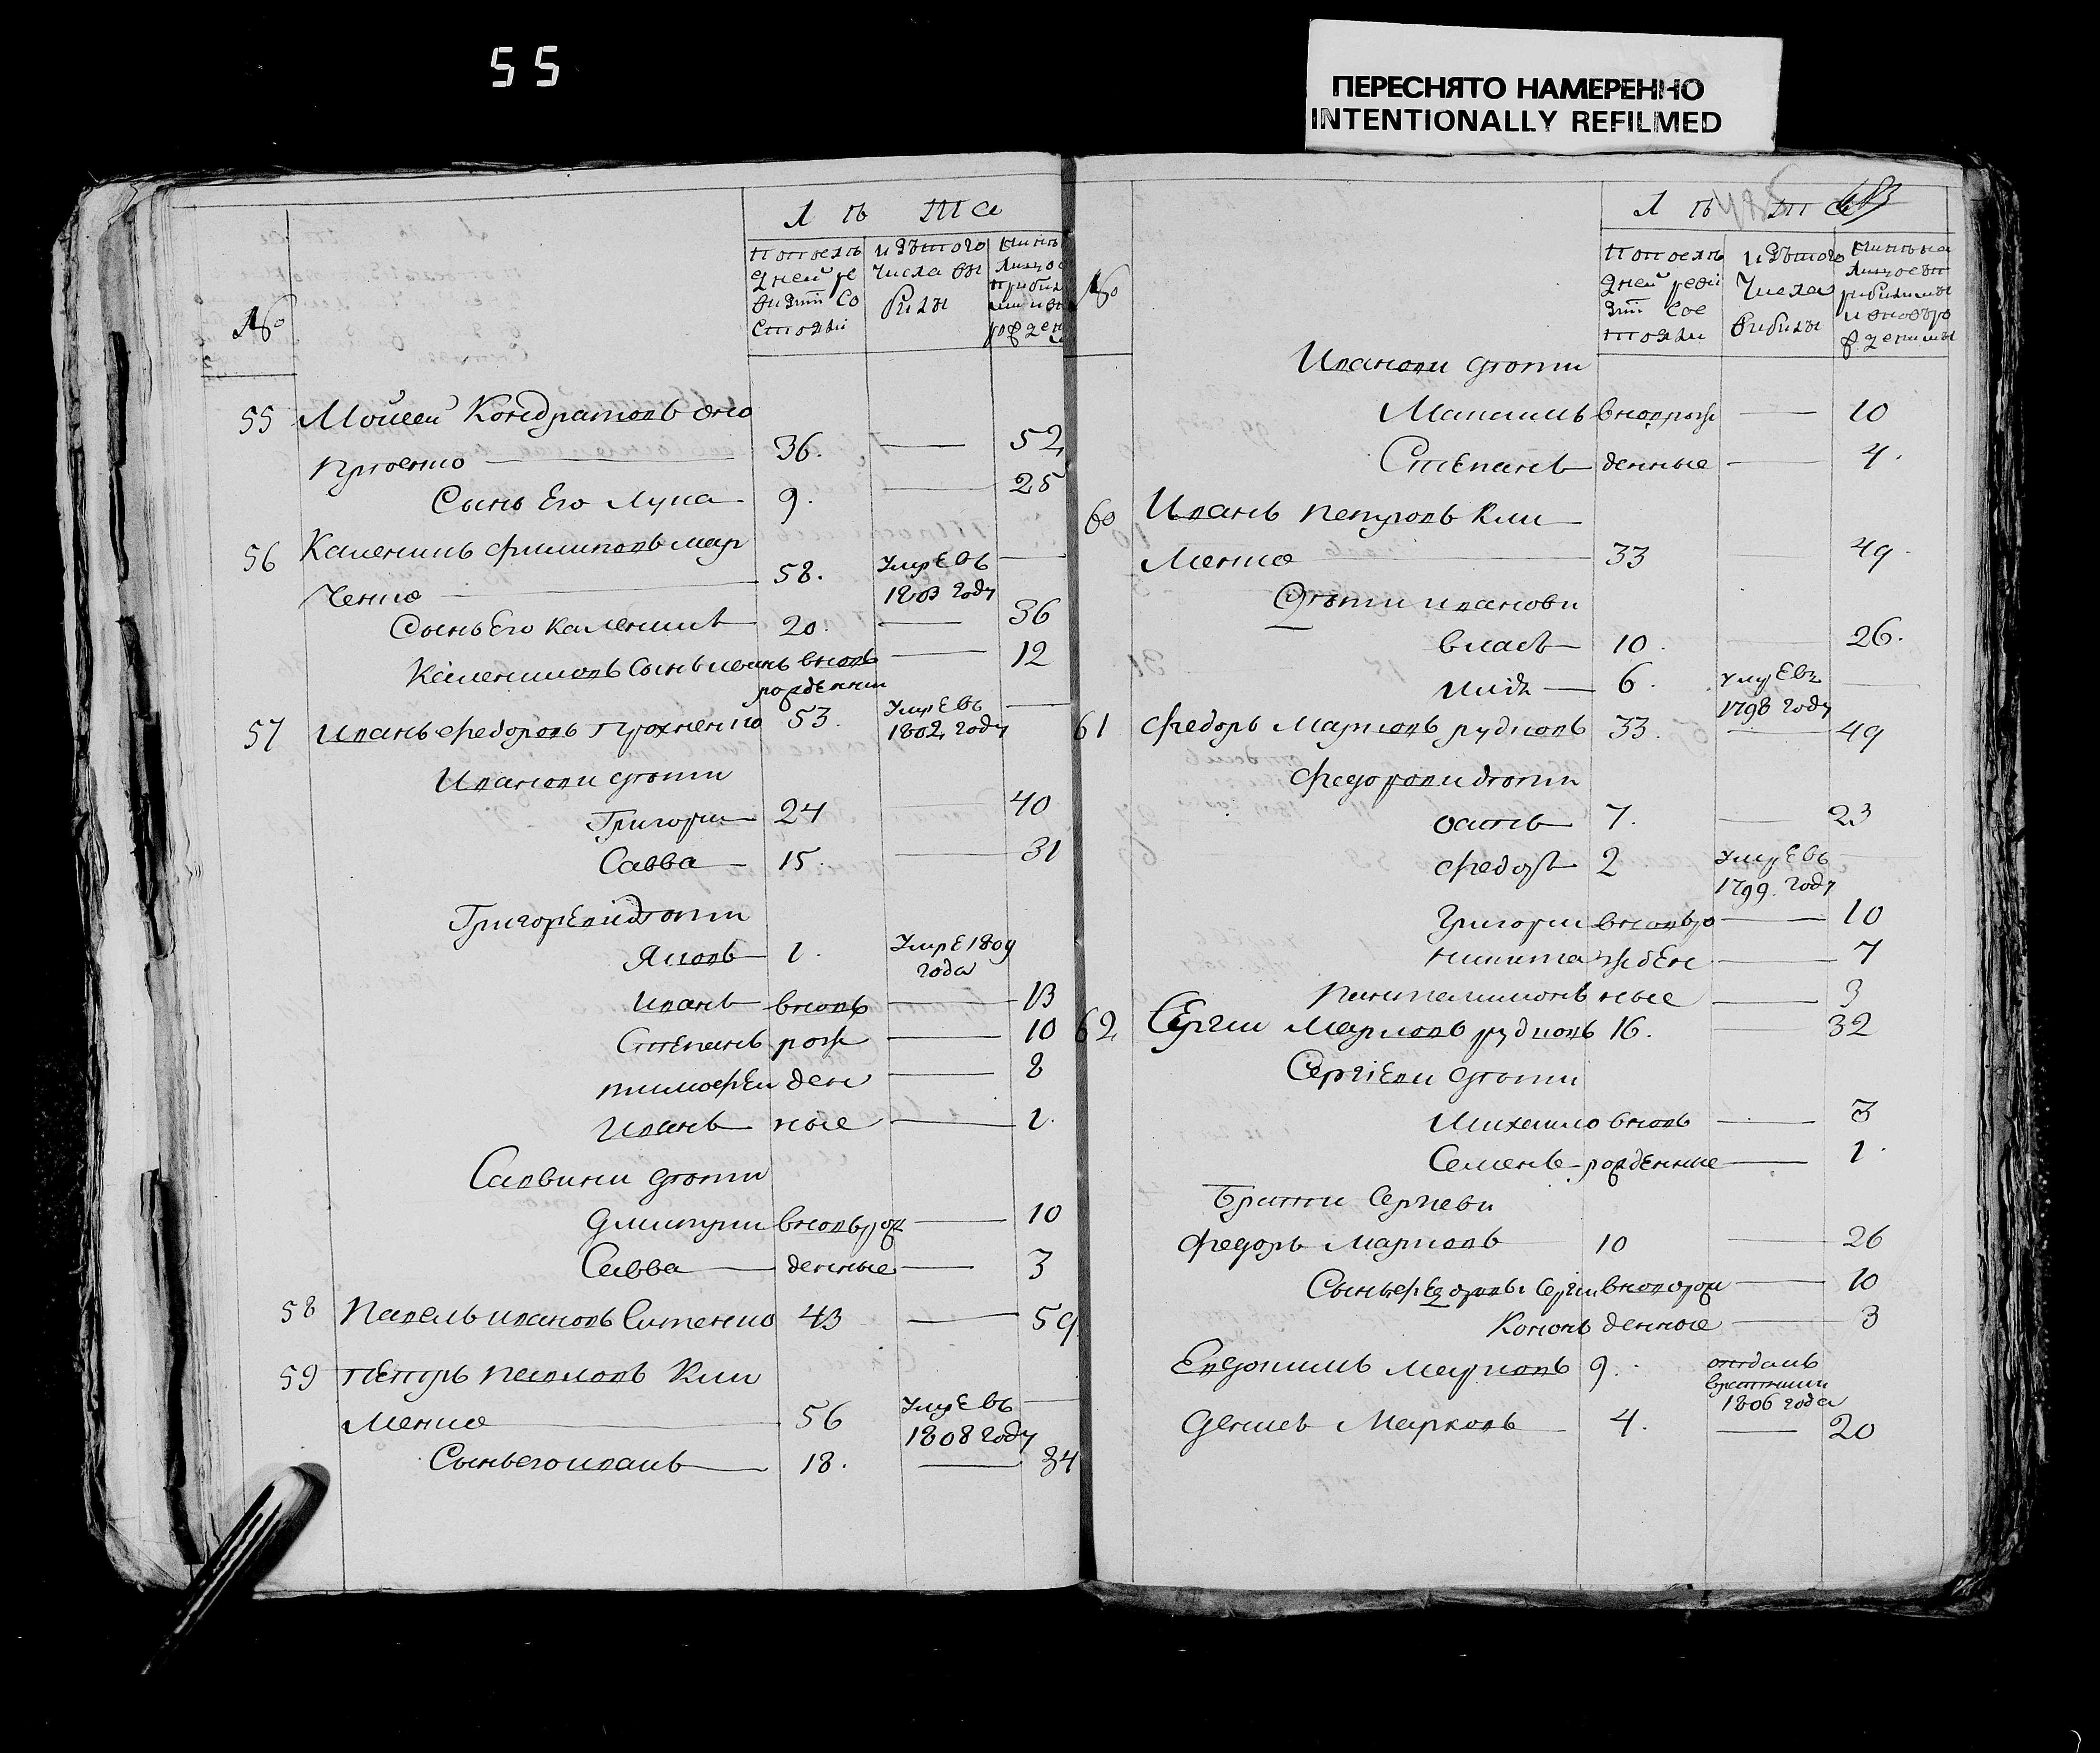 55
ПЕРЕСНЯТО НАМЕРЕННО
INTENTIONALLY REFILMED
Лѣта
№
По последней ревизіи состояли
Изътого числа выбыли
55 Мойсей Кондратовъ
36. — 52
Сынъ Его Лука 9. — 25
56 Каленикъ Филиповъ Мар
ченко 58. Умре въ 1803 году —
Сынъ Его Каленикъ 20. — 36
Калениковъ Сынъ Иванъ вновь рожденни — 12
57 Иванъ Федоровъ Прохненко 53. Умре въ 1802 году —
Ивановы дѣти
Григори 24 — 40
Савва 15. — 31
Григоревы дѣти
Яковъ 1. Умре 1809 года
Иванъ вновь — 13
Степанъ рож — 10
тимофеи ден — 8
Иванъ ные — 1.
Саввины дѣти
Дмитрии вновь рож — 10
Савва денные — 3
58 Павелъ Ивановъ Ситенко 43 — 59
59 Петръ Павловъ Кли
менко 56 Умре въ 1808 году —
Сынъ его иванъ 18. — 34
Лѣта
№
По последней ревизіи состояли
Изътого Числа выбыли
Ивановы дѣти
Максимъ вновь рож — 10
Степанъ денные — 4.
60 Иванъ Петровъ Кли
менко 33 — 49.
Дѣти ивановы
власъ 10. — 26.
6. Умре въ 1798 году —
61 Федоръ Марковъ рудковъ 33. — 49
Федоровы дѣти
осипъ 7. — 23
Федоръ 2 Умре въ 1799. году —
Григори вновь ро — 10
никита жден — 7
Пантелимонъ ные — 3
62 Сергии Марковъ рудковъ 16. — 32
Сергіеви дѣти
Михаило вновь — 3
Семенъ рожденные — 1.
Братя Сергиеви
Федоръ Марковъ 10 — 26
Сынъ Федоровъ Сергии вновь рож — 10
Кононъ денные — 3
Евдокимъ Марковъ 9. отданъ 1806 года
Денисъ Марковъ 4. — 20